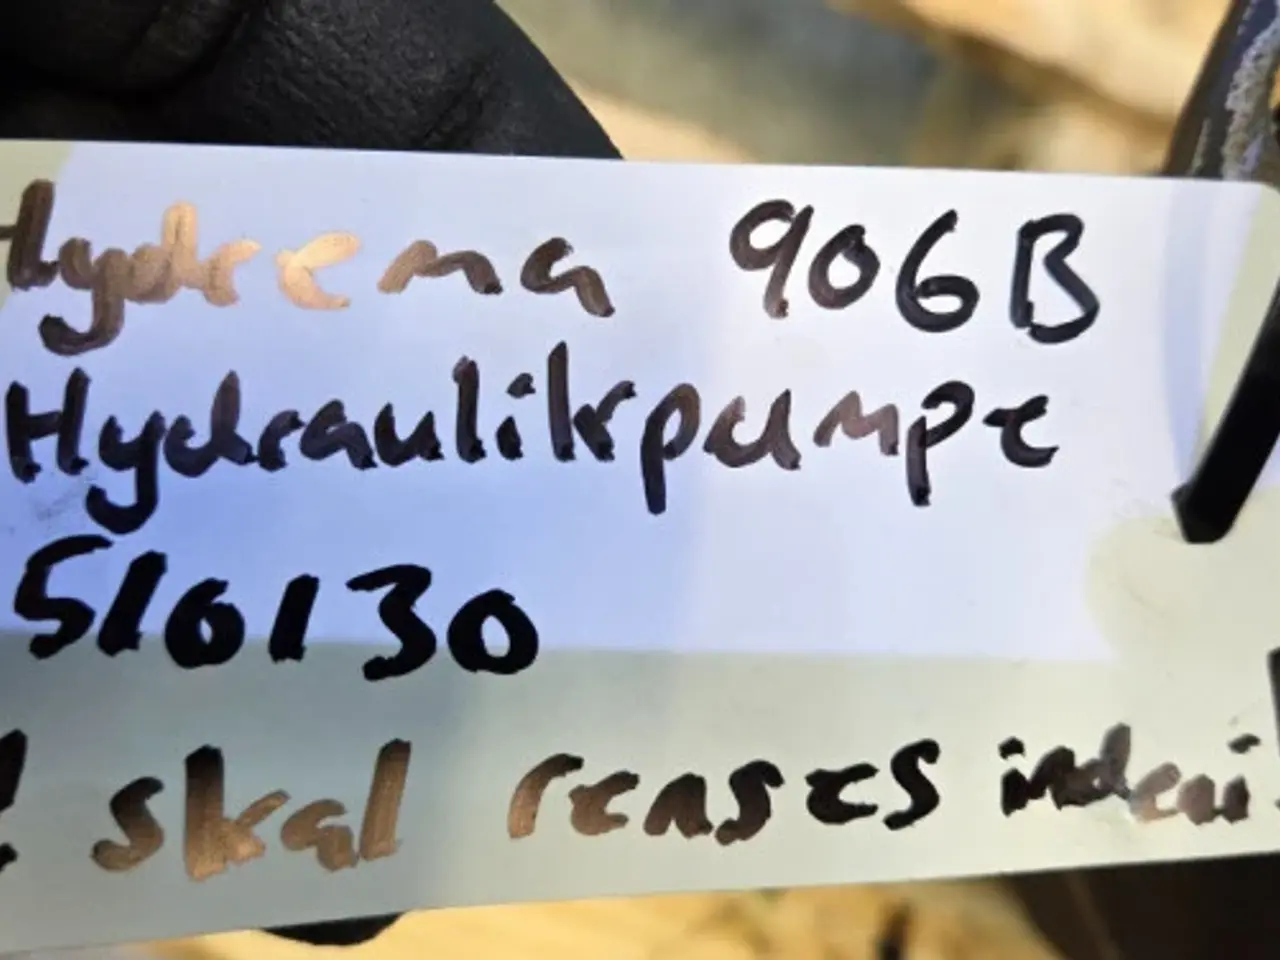 Hydrema 906B
Hydraulikpumpe
510130
skal renses indeni